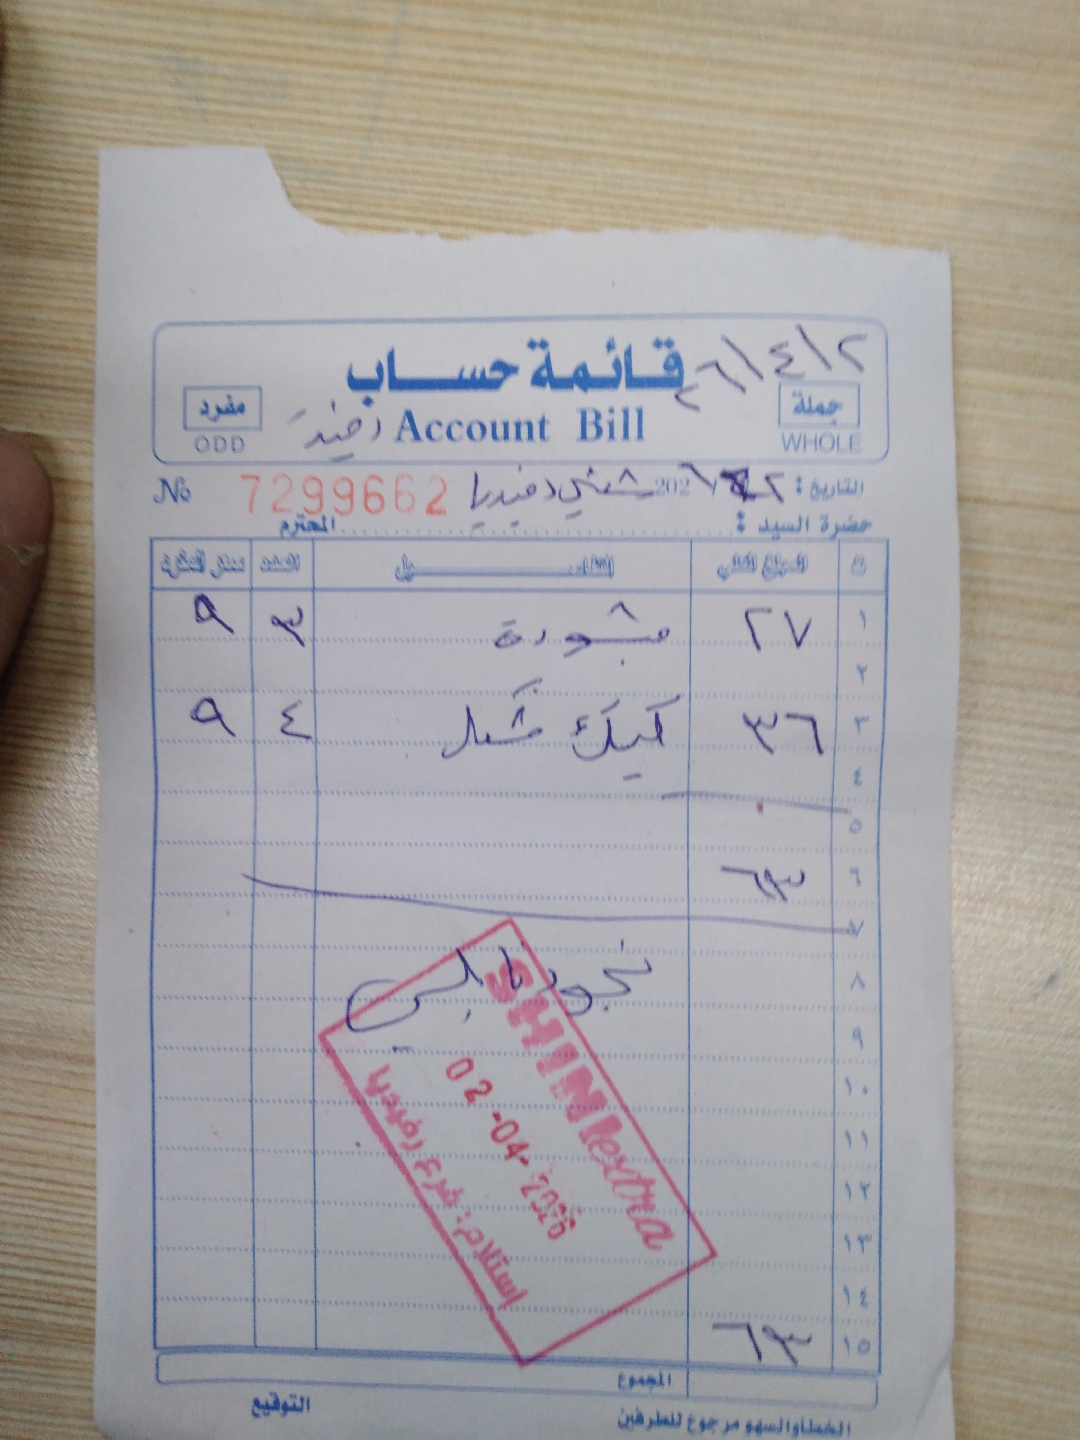 ٢٦/٤/٢
قائمة حساب
مفرد
جملة
Account Bill
ODD
WHOLE
No 7299662
التاريخ : ٢ / 202٦
شني رفيديا
حضرة السيد : المحترم
ت المبلغ الكلي التفاصيل العدد سعر المفرد
١ ٢٧ ٣ ٩
٢
٣ ٣٦ كيك ٤ ٩
٤
٥
٦ ٦٣
٧
٨
٩
١٠
١١
١٢
١٣
١٤
١٥ ٦٣
SHINI extra
02 -04- 2026
استلام: فرع رفيديا
المجموع
التوقيع
الخطأ والسهو مرجوع للطرفين